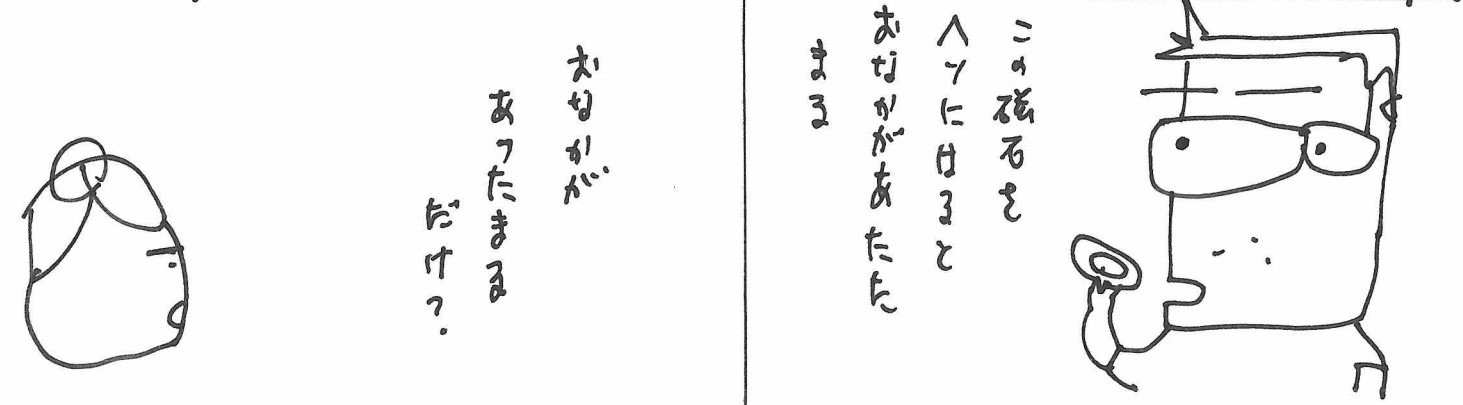 この磁石を
ヘソにはると
おなかがあたた
まる
おなかが
あったまる
だけ?